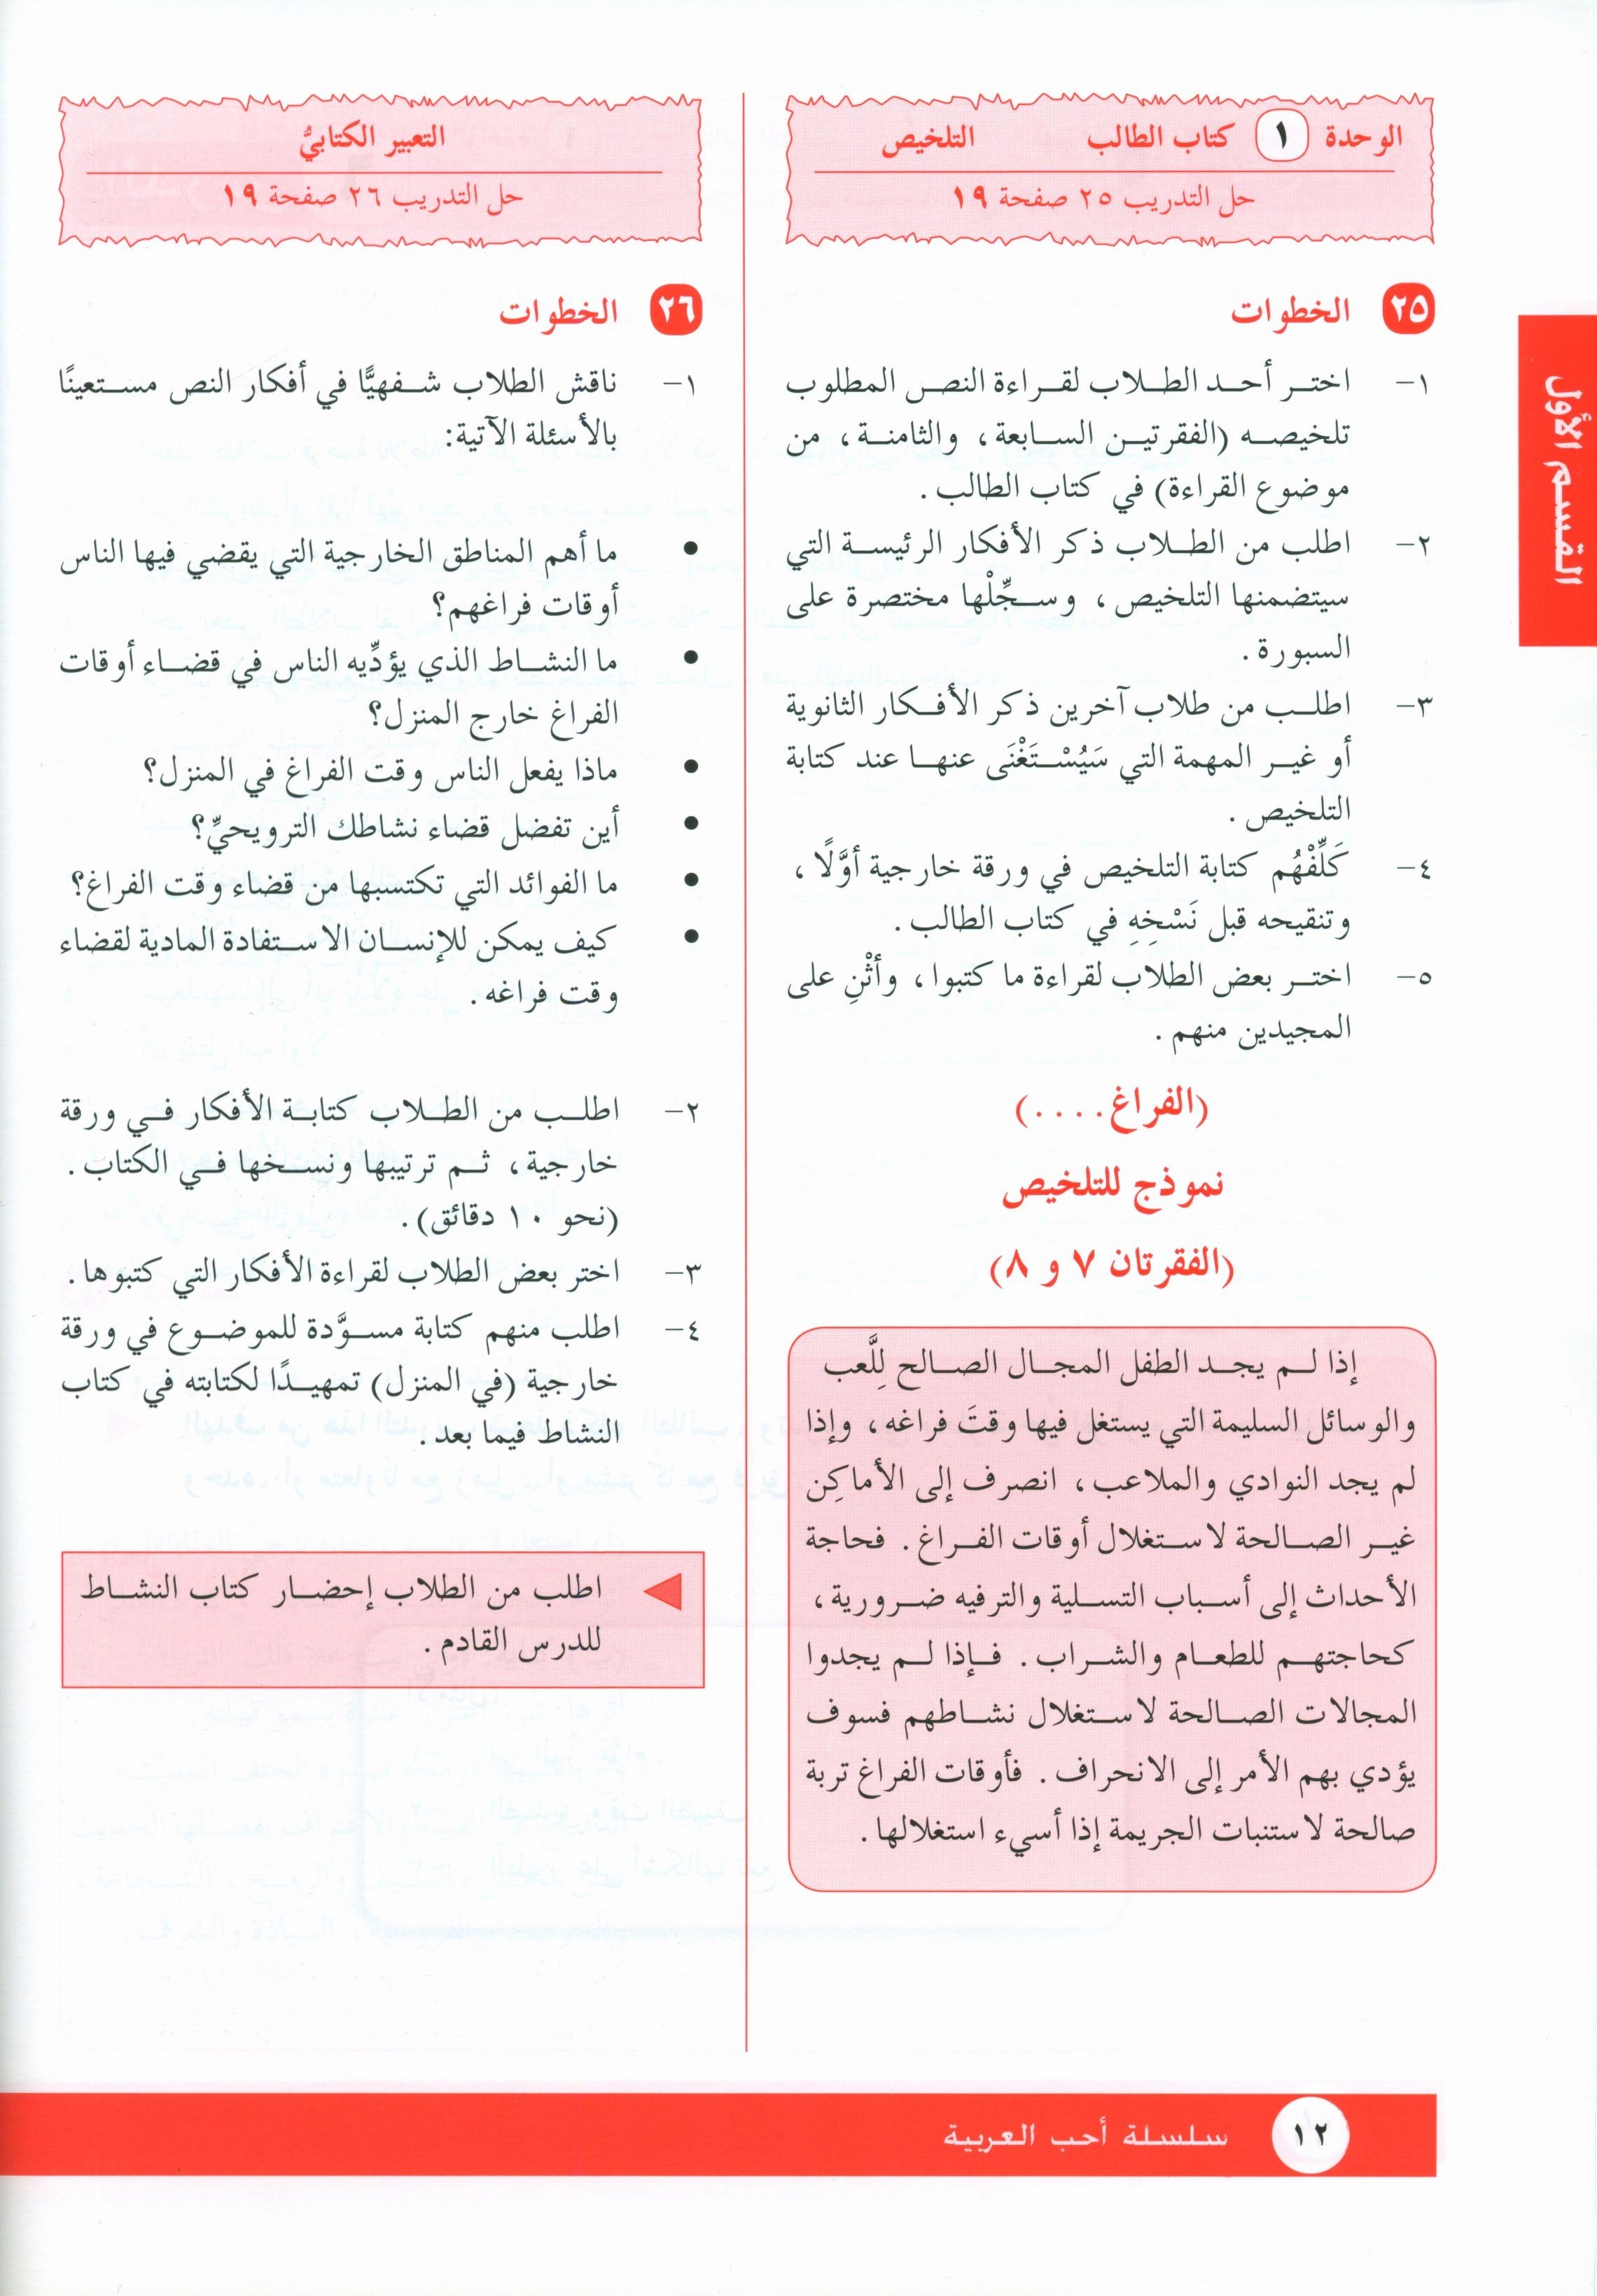 الوحدة ١ كتاب الطالب التلخيص
حل التدريب ٢٥ صفحة ١٩
٢٥ الخطوات
١- اختر أحد الطلاب لقراءة النص المطلوب
تلخيصه (الفقرتين السابعة، والثامنة، من
موضوع القراءة) في كتاب الطالب.
٢- اطلب من الطلاب ذكر الأفكار الرئيسة التي
سيتضمنها التلخيص، وسجِّلْها مختصرة على
السبورة.
٣- اطلب من طلاب آخرين ذكر الأفكار الثانوية
أو غير المهمة التي سَيُسْتَغْنَى عنها عند كتابة
التلخيص.
٤- كَلِّفْهُم كتابة التلخيص في ورقة خارجية أوَّلًا،
وتنقيحه قبل نَسْخِهِ في كتاب الطالب.
٥- اختر بعض الطلاب لقراءة ما كتبوا، وأثْنِ على
المجيدين منهم.
(الفراغ....)
نموذج للتلخيص
(الفقرتان ٧ و ٨)
إذا لم يجد الطفل المجال الصالح لِلَّعب
والوسائل السليمة التي يستغل فيها وقتَ فراغه، وإذا
لم يجد النوادي والملاعب، انصرف إلى الأماكِن
غير الصالحة لاستغلال أوقات الفراغ. فحاجة
الأحداث إلى أسباب التسلية والترفيه ضرورية،
كحاجتهم للطعام والشراب. فإذا لم يجدوا
المجالات الصالحة لاستغلال نشاطهم فسوف
يؤدي بهم الأمر إلى الانحراف. فأوقات الفراغ تربة
صالحة لاستنبات الجريمة إذا أسيء استغلالها.
التعبير الكتابيُّ
حل التدريب ٢٦ صفحة ١٩
٢٦ الخطوات
١- ناقش الطلاب شفهيًّا في أفكار النص مستعينًا
بالأسئلة الآتية:
• ما أهم المناطق الخارجية التي يقضي فيها الناس
أوقات فراغهم؟
• ما النشاط الذي يؤدِّيه الناس في قضاء أوقات
الفراغ خارج المنزل؟
• ماذا يفعل الناس وقت الفراغ في المنزل؟
• أين تفضل قضاء نشاطك الترويحيِّ؟
• ما الفوائد التي تكتسبها من قضاء وقت الفراغ؟
• كيف يمكن للإنسان الاستفادة المادية لقضاء
وقت فراغه.
٢- اطلب من الطلاب كتابة الأفكار في ورقة
خارجية، ثم ترتيبها ونسخها في الكتاب.
(نحو ١٠ دقائق).
٣- اختر بعض الطلاب لقراءة الأفكار التي كتبوها.
٤- اطلب منهم كتابة مسوَّدة للموضوع في ورقة
خارجية (في المنزل) تمهيدًا لكتابته في كتاب
النشاط فيما بعد.
اطلب من الطلاب إحضار كتاب النشاط
للدرس القادم.
القسم الأول
١٢ سلسلة أحب العربية